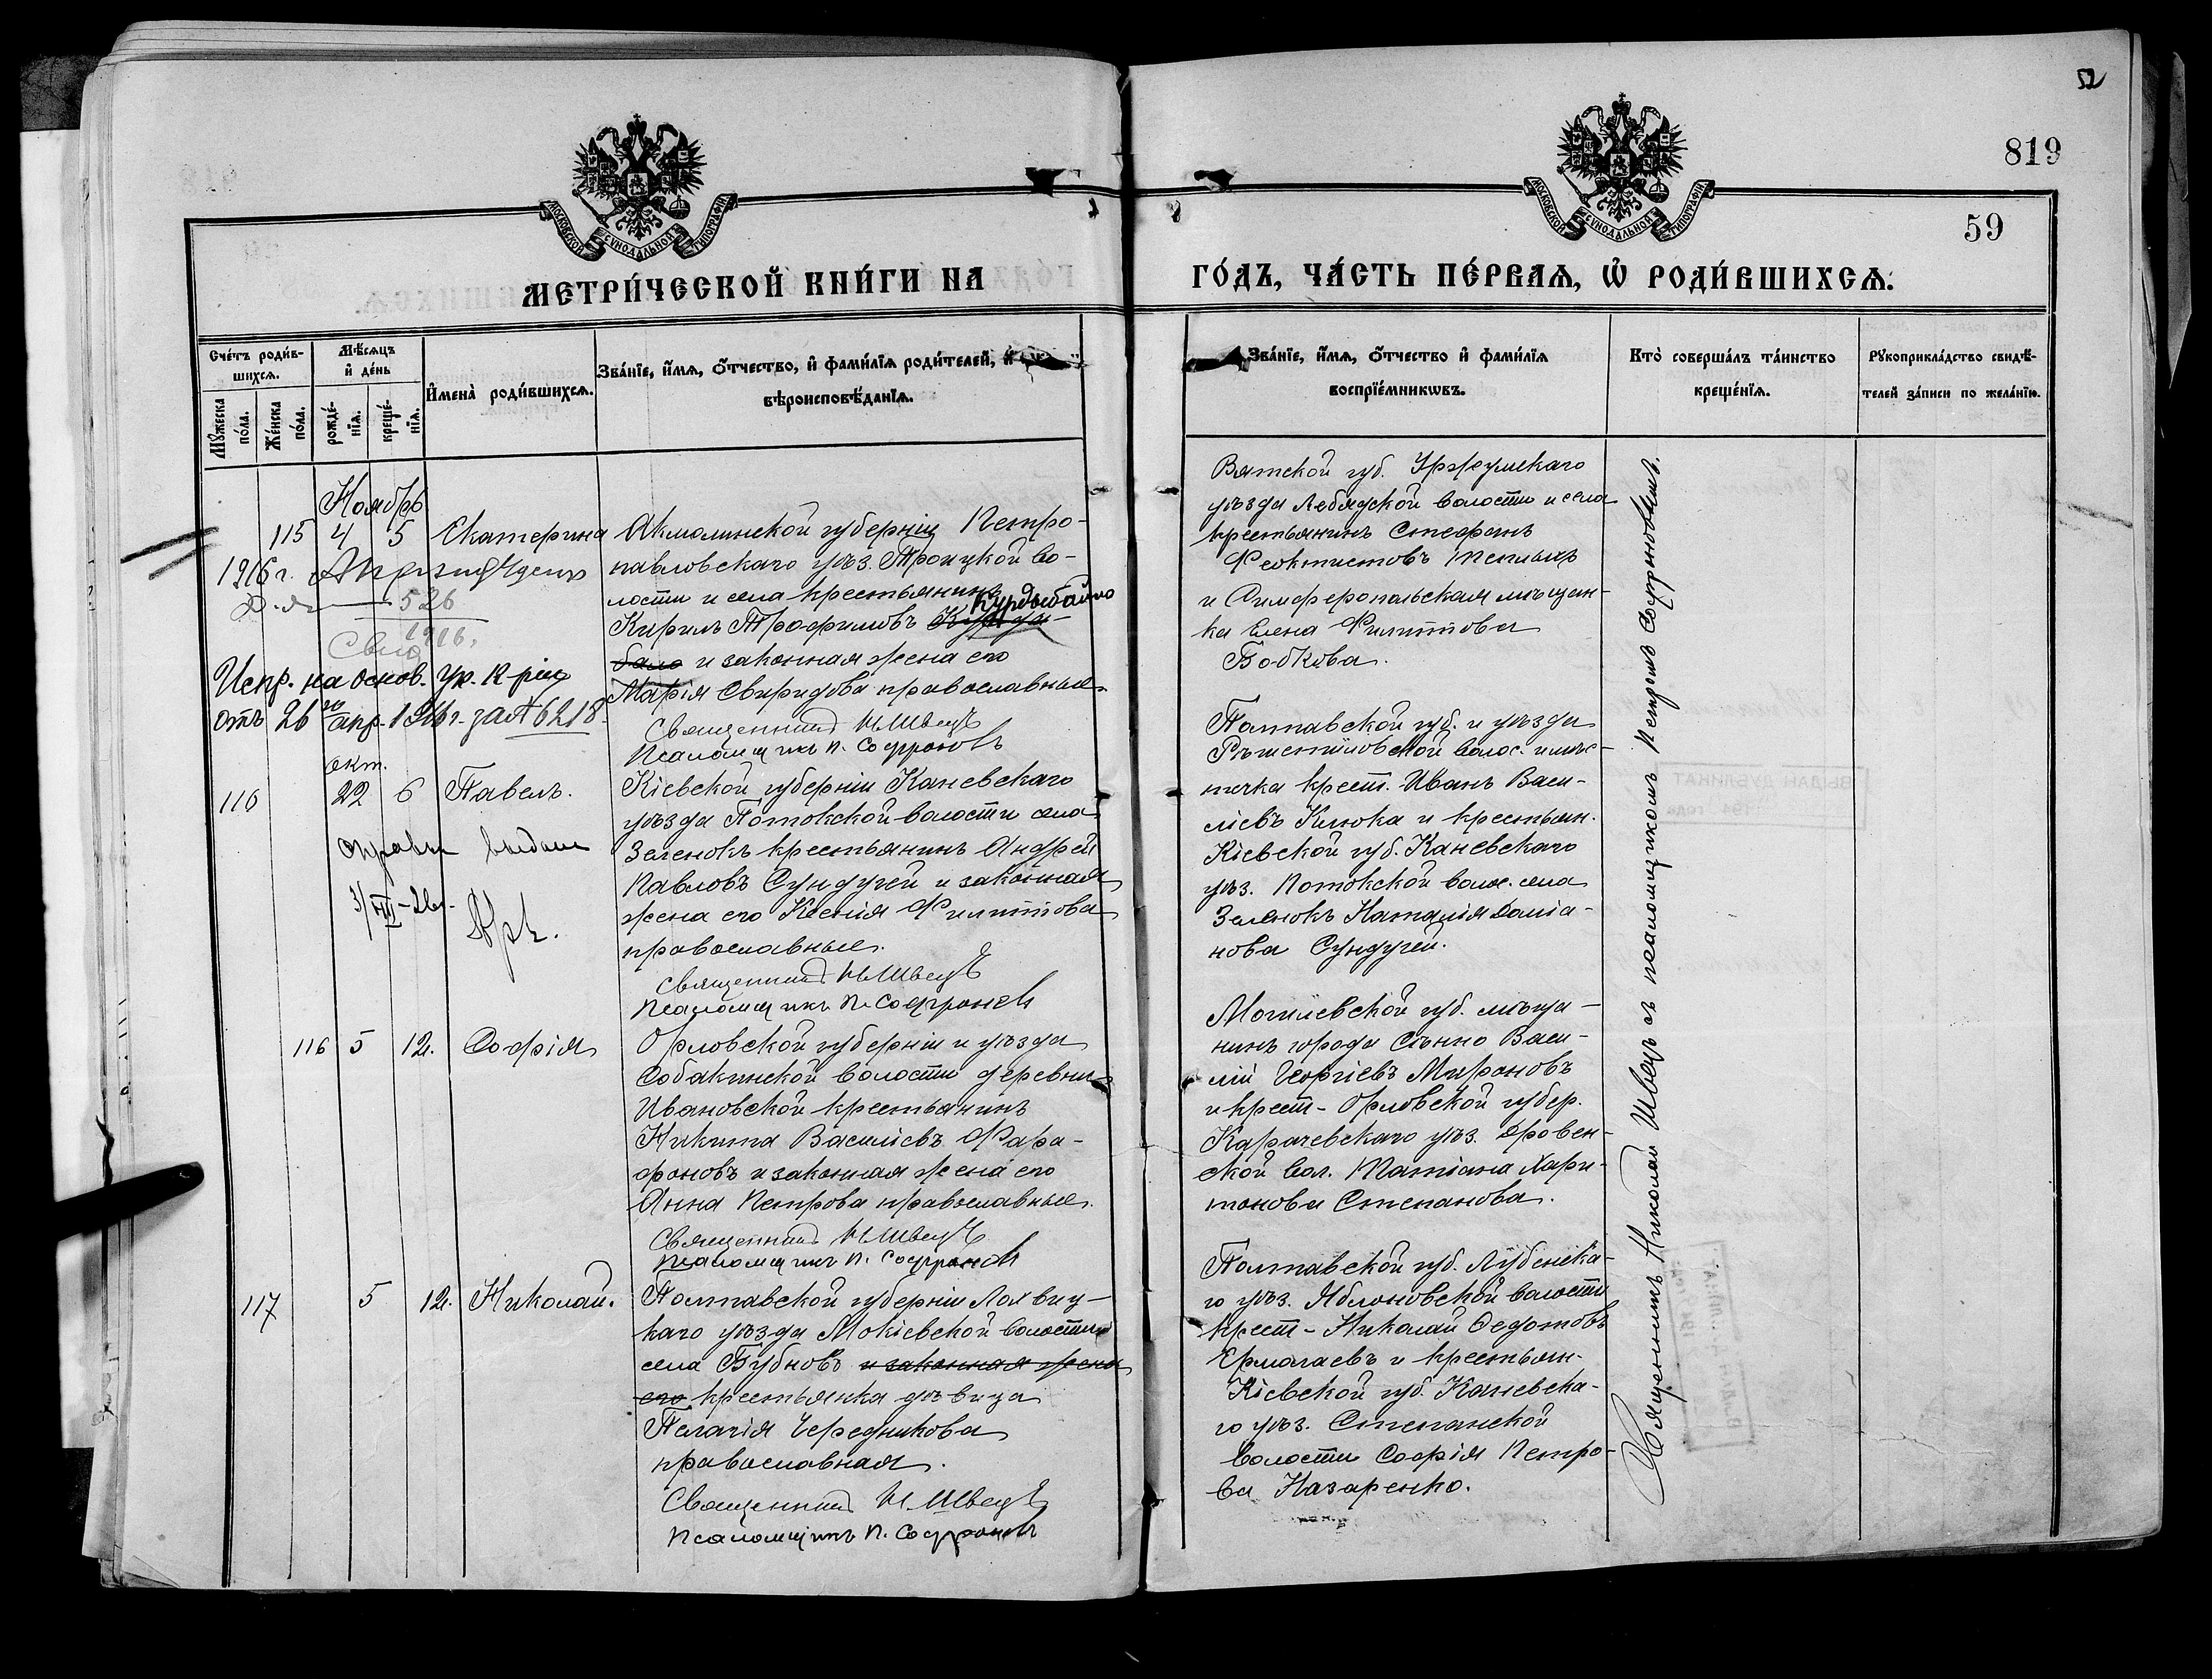 52
819
59
МОСКОВСКОЙ СѴНОДАЛЬНОЙ ТИПОГРАФІИ
МОСКОВСКОЙ СѴНОДАЛЬНОЙ ТИПОГРАФІИ
МЕТРИ́ЧЕСКОЙ КНИ́ГИ НА
ГО́ДЪ, ЧА́СТЬ ПЕ́РВАѦ, Ѡ҆ РОДИ́ВШИХСѦ.
Сче́тъ роди́в-
шихсѧ.
Мꙋ́жеска по́ла.
Же́нска по́ла.
Мѣ́сѧцъ и҆ де́нь
рожде́-
нїѧ.
креще́-
нїѧ.
И҆мена̀ роди́вшихсѧ.
Зва́нїе, и҆́мѧ, ѻ҆́тчество, и҆ фами́лїѧ роди́телей, и҆
вѣроисповѣ́данїѧ.
Зва́нїе, и҆́мѧ, ѻ҆́тчество и҆ фами́лїѧ
воспрїе́мникѡвъ.
Кто̀ соверша́лъ та́инство
креще́нїѧ.
Рꙋкоприкла́дство свидѣ́-
телей за́писи по жела́нїю.
Ноябрь
115 4 5 Екатерина
Акмолинской губерніи Петро-
павловскаго уѣз. Троицкой во-
лости и села крестьянинъ
Курдыбайло
Кирилъ Трофимовъ Курды-
бало и законная жена его
Марія Свиридова православные.
Священникъ Н. Швецъ
Псаломщикъ П. Софроновъ
1916 г.
526
1916.
Свид
Испр. на основ. ур.
отъ 26 го апр. 1916 г. за № 6218.
Вятской губ. Уржумскаго
уѣзда Лебядской волости и села
крестьянинъ Стефанъ
Феоктистовъ Теплыхъ
и Симферопольская мѣщан-
ка Елена Филиппова
Бобкова.
окт.
116 22 6 Павелъ.
Кіевской губерніи Каневскаго
уѣзда Потокской волости села
Зеленокъ крестьянинъ Андрей
Павловъ Сундугей и законная
жена его Ксенія Филиппова
православные.
Священникъ Н. Швецъ
Псаломщикъ П. Софроновъ
справка выдана
Полтавской губ. и уѣзда
Рѣшетиловской волос. и мѣс-
течка крест. Иванъ Васи-
ліевъ Клюка и крестьян.
Кіевской губ. Каневскаго
уѣз. Потокской волос. села
Зеленокъ Наталія Даміа-
нова Сундугей.
116 5 12. Софія
Орловской губерніи и уѣзда
Собакинской волости деревни
Ивановской крестьянинъ
Никита Василіевъ Фара-
фоновъ и законная жена его
Анна Петрова православные.
Священникъ Н. Швецъ
Псаломщикъ П. Софроновъ
Могилевской губ. мѣща-
нинъ города Сѣнно Васи-
лій Георгіевъ Мироновъ
и крест- Орловской губер.
Карачевскаго уѣз. Дровен-
ской вол. Татіана Хари-
тонова Степанова.
117 5 12. Николай.
Полтавской губерніи Лохвиц-
каго уѣзда Мокіевской волости
села Бубновъ и законная жена
его крестьянка дѣвица
Пелагія Чередникова
православная.
Священникъ Н. Швецъ
Псаломщикъ П. Софроновъ
Полтавской губ. Лубенска-
го уѣз. Яблоновской волости
крест- Николай Федотовъ
Ермолаевъ и крестьян-
Кіевской губ. Каневска-
го уѣз. Степанской
волости Софія Петро-
ва Назаренко.
Священникъ Николай Швецъ съ псаломщикомъ Петромъ Софроновымъ.
ВЫДАН ДУБЛИКАТ